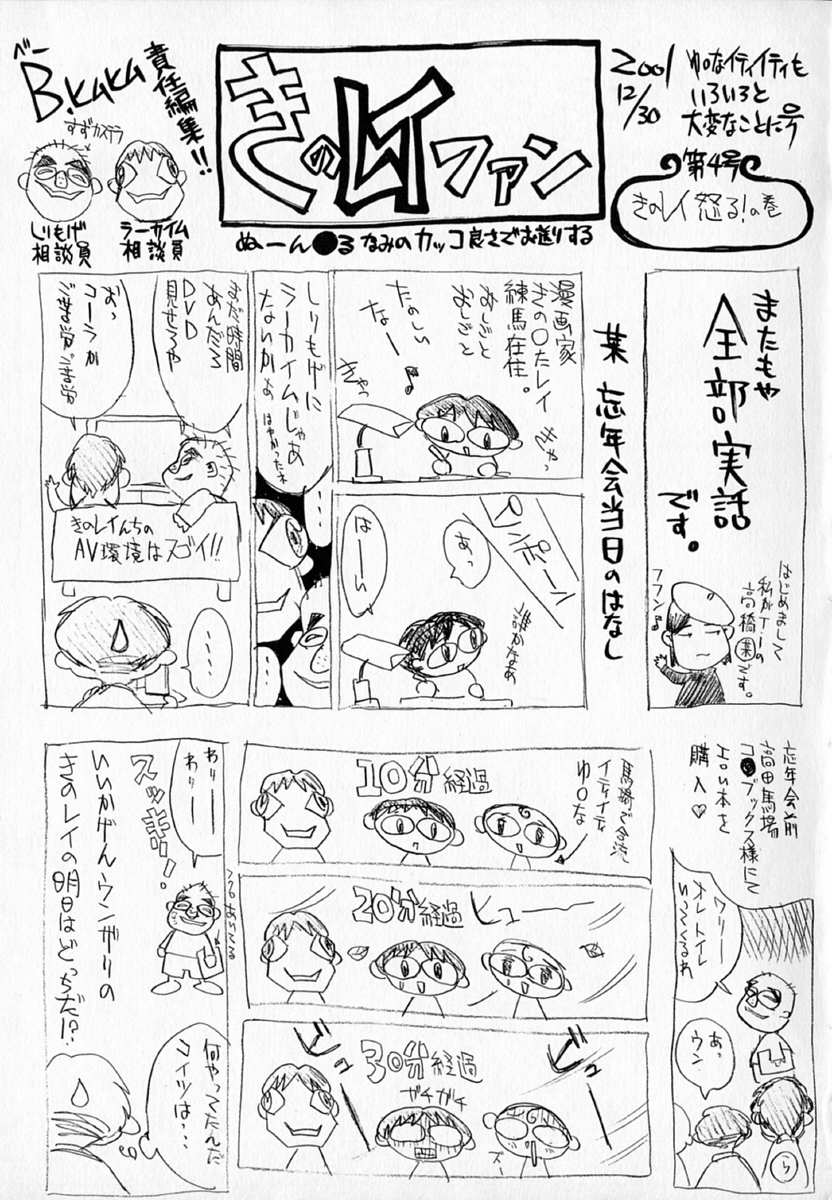 ベー
B.KaKa
責任編集!!
すずカステラ
しりもげ
相談員
ラーカイム
相談員
きのレイファン
ぬーん●るなみのカッコ良さでお送りする
2001
12/30
ゆ○なイティイティも
いろいろと
大変なことに号
第4号
きのレイ怒る!の巻
またもや
全部実話
です。
はじめまして
私がT.Iの
高橋(業)です。
フフン
某 忘年会当日のはなし
漫画家
きの○たレイ
練馬在住。
おしごと
おしごと
たのしい
なー♪
きゃっ
きゃっ
ピンポーン
あっ
誰かなぁ
はーい
しりもげに
ラーカイムじゃあ
ないかぁ
はやかったネ
・・・
・・・
まだ時間
あんだろ
DVD
見せろや
おっ
コーラか
ご苦労ご苦労
きのレイんちの
AV環境はスゴイ!!
・・・・
忘年会前
高田馬場
コ●ブックス様にて
エロい本を
購入♡
ワリー
オレトイレ
いってくるわ
あっ
ウン
ら
馬場で合流
イティイティ
ゆ○な
10分経過
20分経過
ヒュー
30分経過
ビュ
ビュ
ガチガチ
ズー
わりー
わりー
スッキリ!
フクロあいてる
いいかげんウンザリの
きのレイの明日はどっちだ!?
何やってたんだ
コイツは・・・